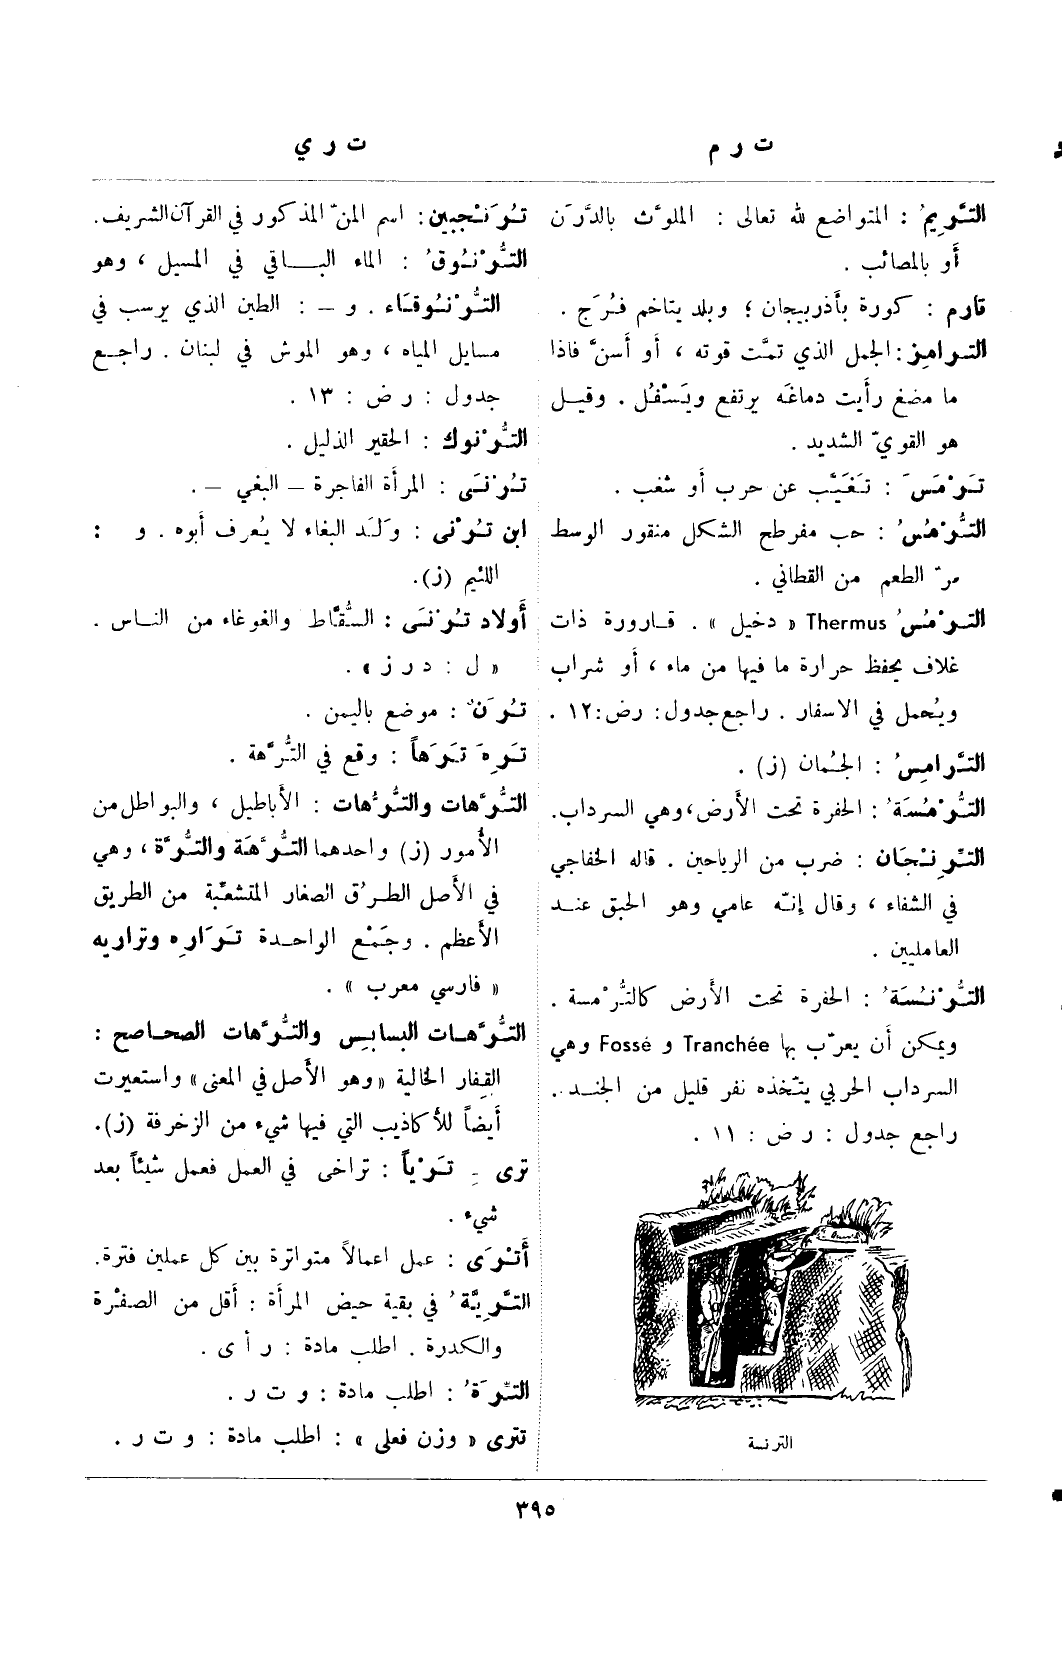 ت ر م
ت ر ي
التَّرِيمُ : المتواضع لله تعالى : الملوَّث بالدَّرَن
أو بالمصائب .
تارم : كورة بأذربيجان ؛ وبلد يتاخم فُرَج .
الترامِز : الجمل الذي تمَّت قوته ، أو أسنَّ فاذا
ما مضغ رأيت دماغَه يرتفع ويَسْفُل . وقيل
هو القويّ الشديد .
تَرْمَسَ : تَغَيَّب عن حرب أو شغب .
التُّرْمُسُ : حب مفرطح الشكل منقور الوسط
مرّ الطعم من القطاني .
الترْمُسُ Thermus « دخيل » . قارورة ذات
غلاف يحفظ حرارة ما فيها من ماء ، أو شراب
ويُحمل في الاسفار . راجع جدول : رض : ١٢ .
التَّرامِسُ : الجُمان (ز) .
التُّرْمُسَةُ : الحفرة تحت الأرض، وهي السرداب.
التِّرِنْجَان : ضرب من الرياحين . قاله الخفاجي
في الشفاء ، وقال إنّه عامي وهو الحبق عند
العامليين .
التُّرْنُسَةُ : الحفرة تحت الأرض كالتُّرْمسة .
ويمكن أن يعرّب بها Tranchée و Fossé وهي
السرداب الحربي يتّخذه نفر قليل من الجند .
راجع جدول : ر ض : ١١ .
الترنسة
تُرَنْجبين : اسم المنّ المذكور في القرآن الشريف.
التُّرْنُوقُ : الماء الباقي في المسيل ، وهو
التُّرْنُوقَاء . و — : الطين الذي يرسب في
مسايل المياه ، وهو الموش في لبنان . راجع
جدول : ر ض : ١٣ .
التُّرْنوك : الحقير الذليل .
تُرْنَى : المرأة الفاجرة — البغي — .
ابن تُرْنى : وَلَد البغاء لا يُعرف أبوه . و :
اللئيم (ز).
أَولاد تُرْنَى : السُّقَّاط والغوغاء من الناس .
« ل : د ر ز » .
تُرَنٌ : موضع باليمن .
تَرِهَ تَرَهاً : وقع في التُّرَّهة .
التُّرَّهات والتُّرُّهات : الأباطيل ، والبواطل من
الأُمور (ز) واحدهما التُّرَّهَة والتُّرَّة ، وهي
في الأصل الطرُق الصغار المتشعّبة من الطريق
الأعظم . وجَمْع الواحدة تَرَارِه وتراريه
« فارسي معرب » .
التُّرَّهات البسابِس والتُّرَّهات الصحاصح :
القِفار الخالية «وهو الأصل في المعنى» واستعيرت
أيضاً للأكاذيب التي فيها شيء من الزخرفة (ز).
ترى ِ تَرْياً : تراخى في العمل فعمل شيئاً بعد
شيء .
أَتْرَى : عمل اعمالاً متواترة بين كل عملين فترة.
التَّرِيَّةُ في بقية حيض المرأة : أقل من الصفْرة
والكدرة . اطلب مادة : ر أ ى .
التِّرَةُ : اطلب مادة : و ت ر .
تترى « وزن فعلى » : اطلب مادة : و ت ر .
٣٩٥